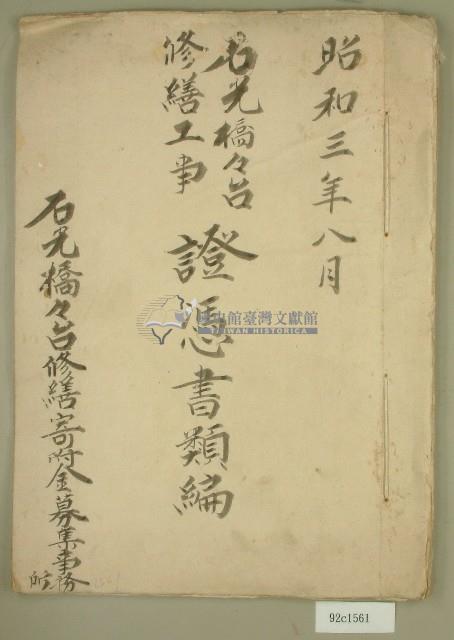 昭和三年八月
石光橋々台
修繕工事
證憑書類編
石光橋々台修繕寄附金募集事務
所
國史館臺灣文獻館
TAIWAN HISTORICA
92c1561